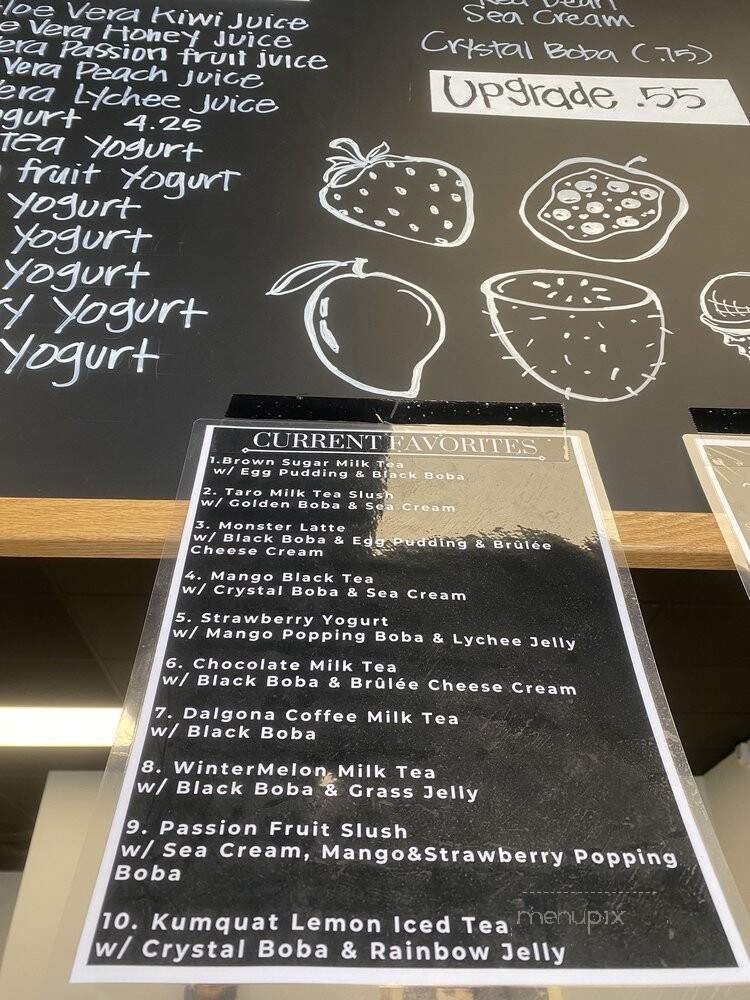 Vera Kiwi Juice
Vera Honey Juice
Vera Passion fruit juice
Vera Peach Juice
Vera Lychee Juice
4.25
Tea Yogurt
fruit Yogurt
Yogurt
Yogurt
Yogurt
Yogurt
Yogurt
Red Bean
Sea Cream
Crystal Boba (.75)
Upgrade .55
CURRENT FAVORITES
1.Brown Sugar Milk Tea
w/ Egg Pudding & Black Boba
2. Taro Milk Tea Slush
w/ Golden Boba & Sea Cream
3. Monster Latte
w/ Black Boba & Egg Pudding & Brûlée
Cheese Cream
4. Mango Black Tea
w/ Crystal Boba & Sea Cream
5. Strawberry Yogurt
w/ Mango Popping Boba & Lychee Jelly
6. Chocolate Milk Tea
w/ Black Boba & Brûlée Cheese Cream
7. Dalgona Coffee Milk Tea
w/ Black Boba
8. WinterMelon Milk Tea
w/ Black Boba & Grass Jelly
9. Passion Fruit Slush
w/ Sea Cream, Mango&Strawberry Popping
Boba
10. Kumquat Lemon Iced Tea
w/ Crystal Boba & Rainbow Jelly
menupix